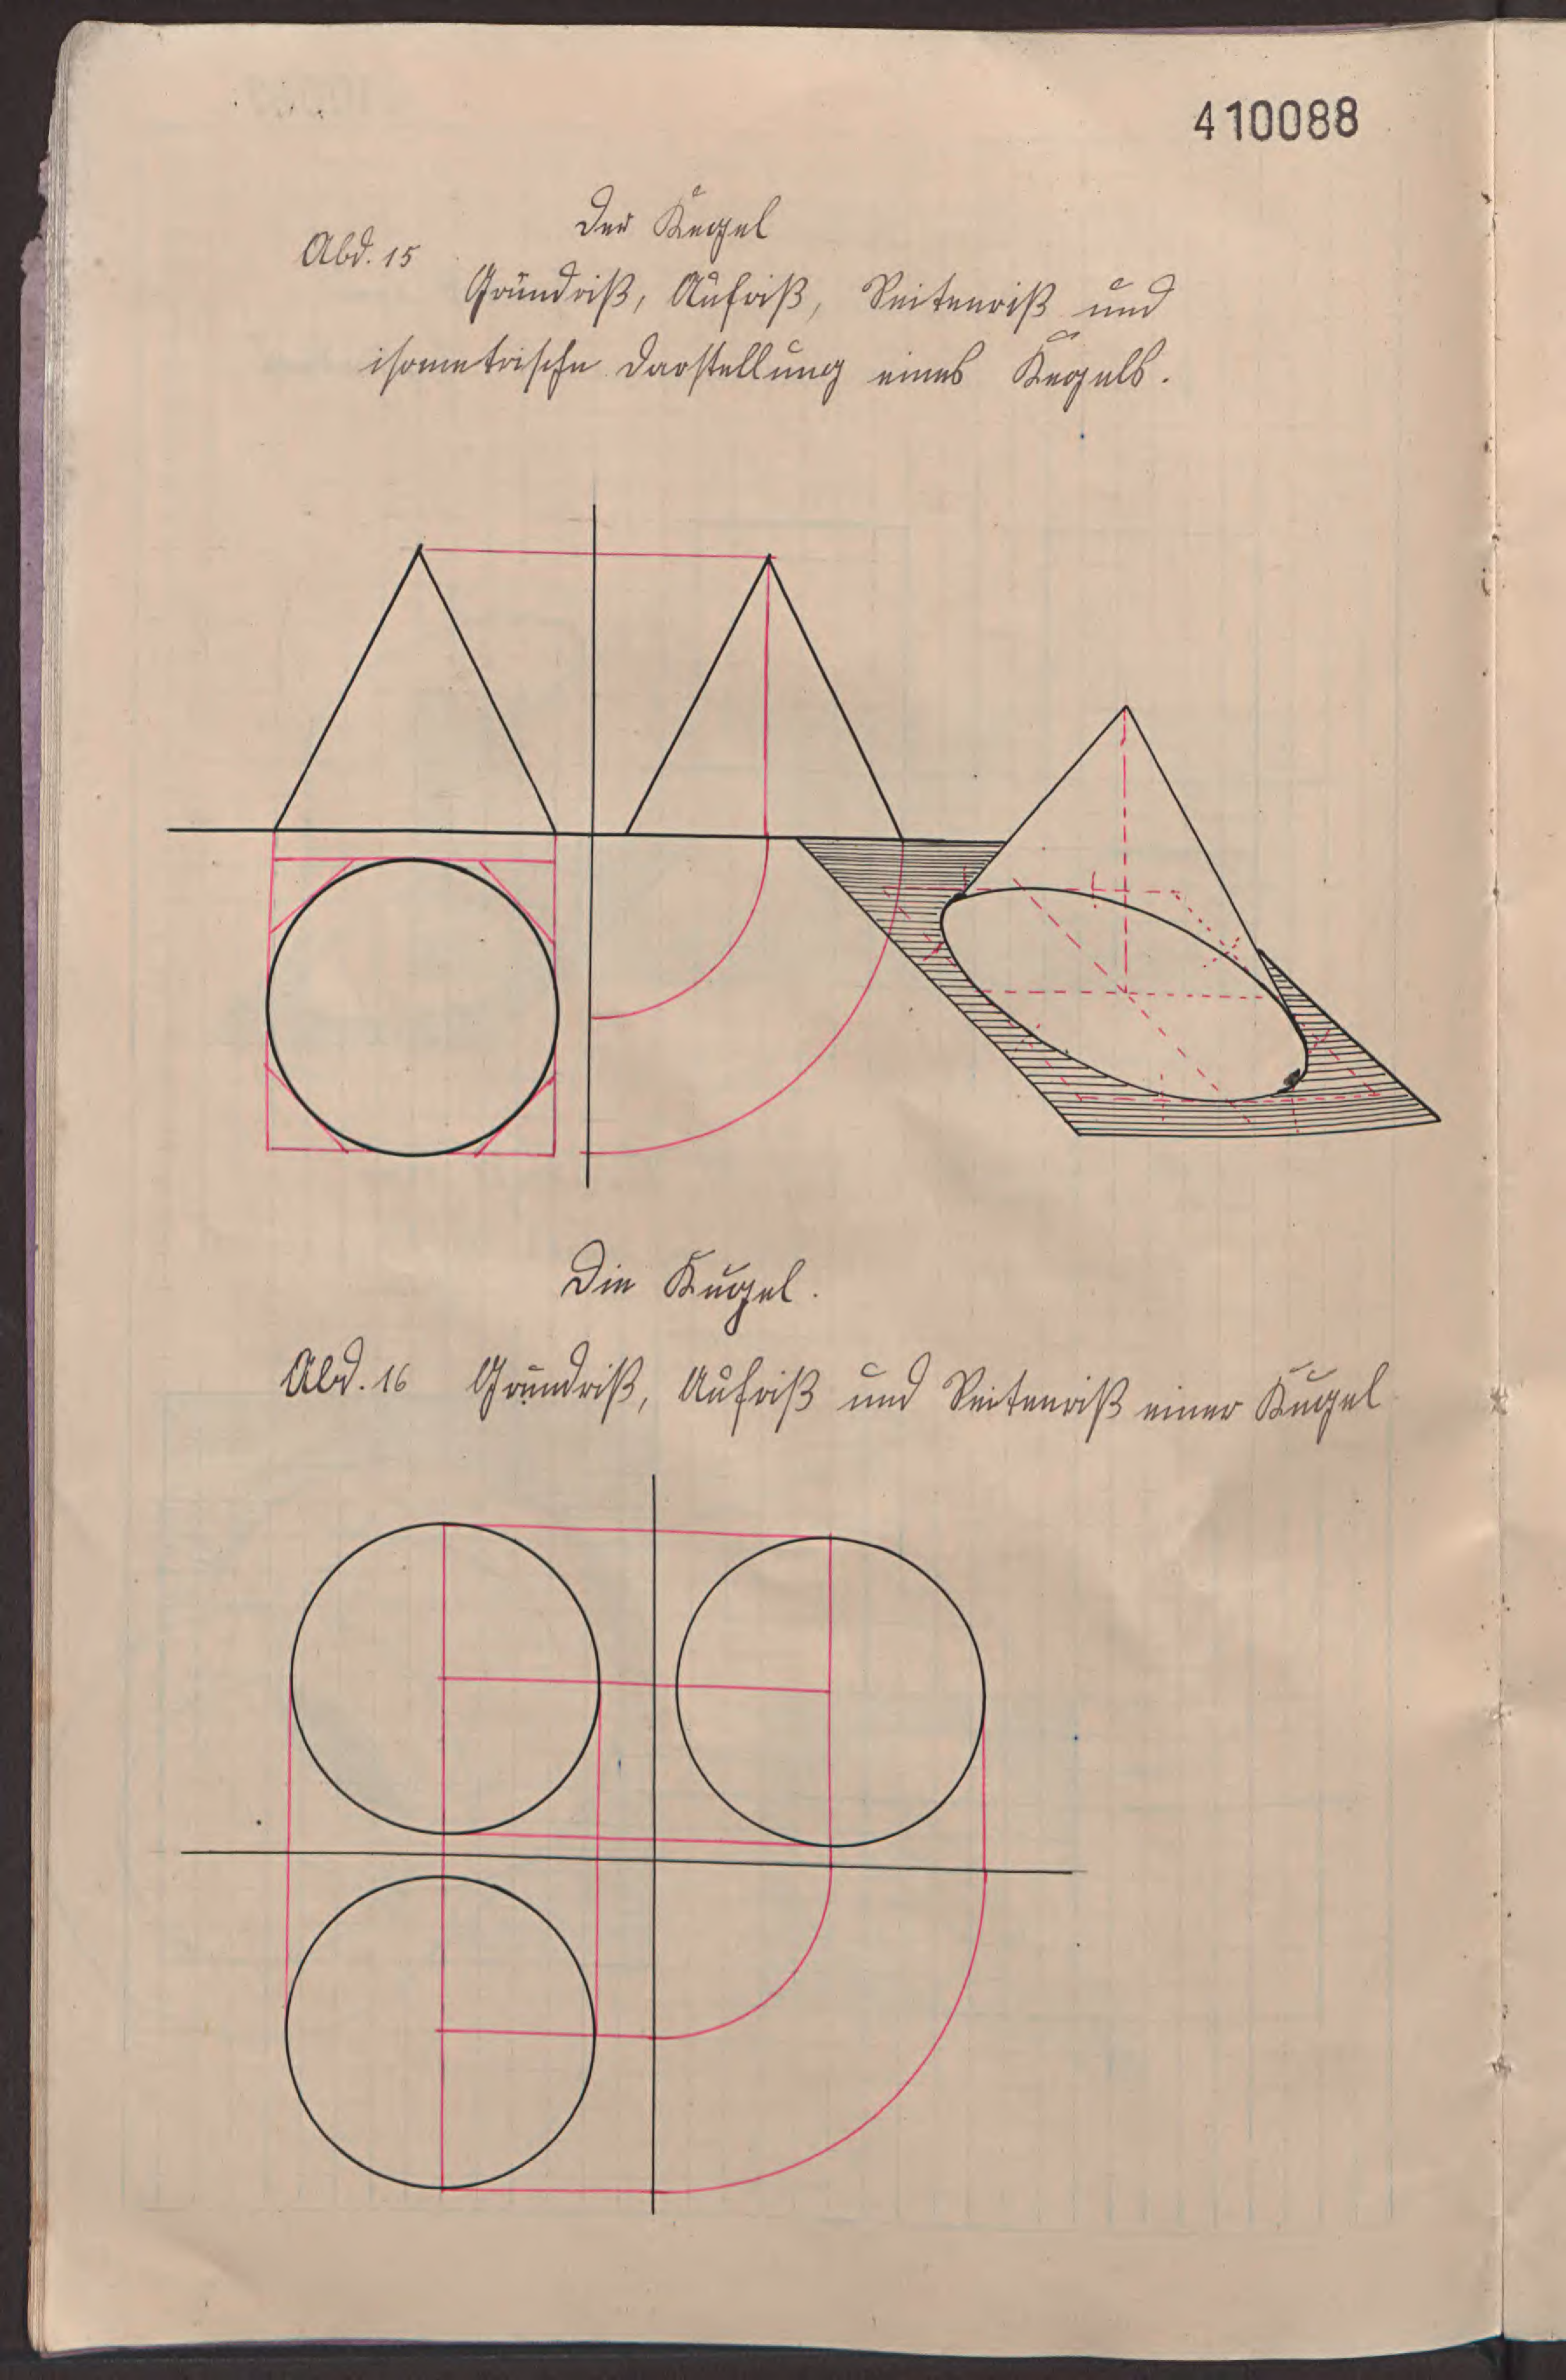 410088
Der Kegel
Abb. 15
Grundriß, Aufriß, Seitenriß und
isometrische Darstellung eines Kegels.
Die Kugel.
Abb. 16 Grundriß, Aufriß und Seitenriß einer Kugel